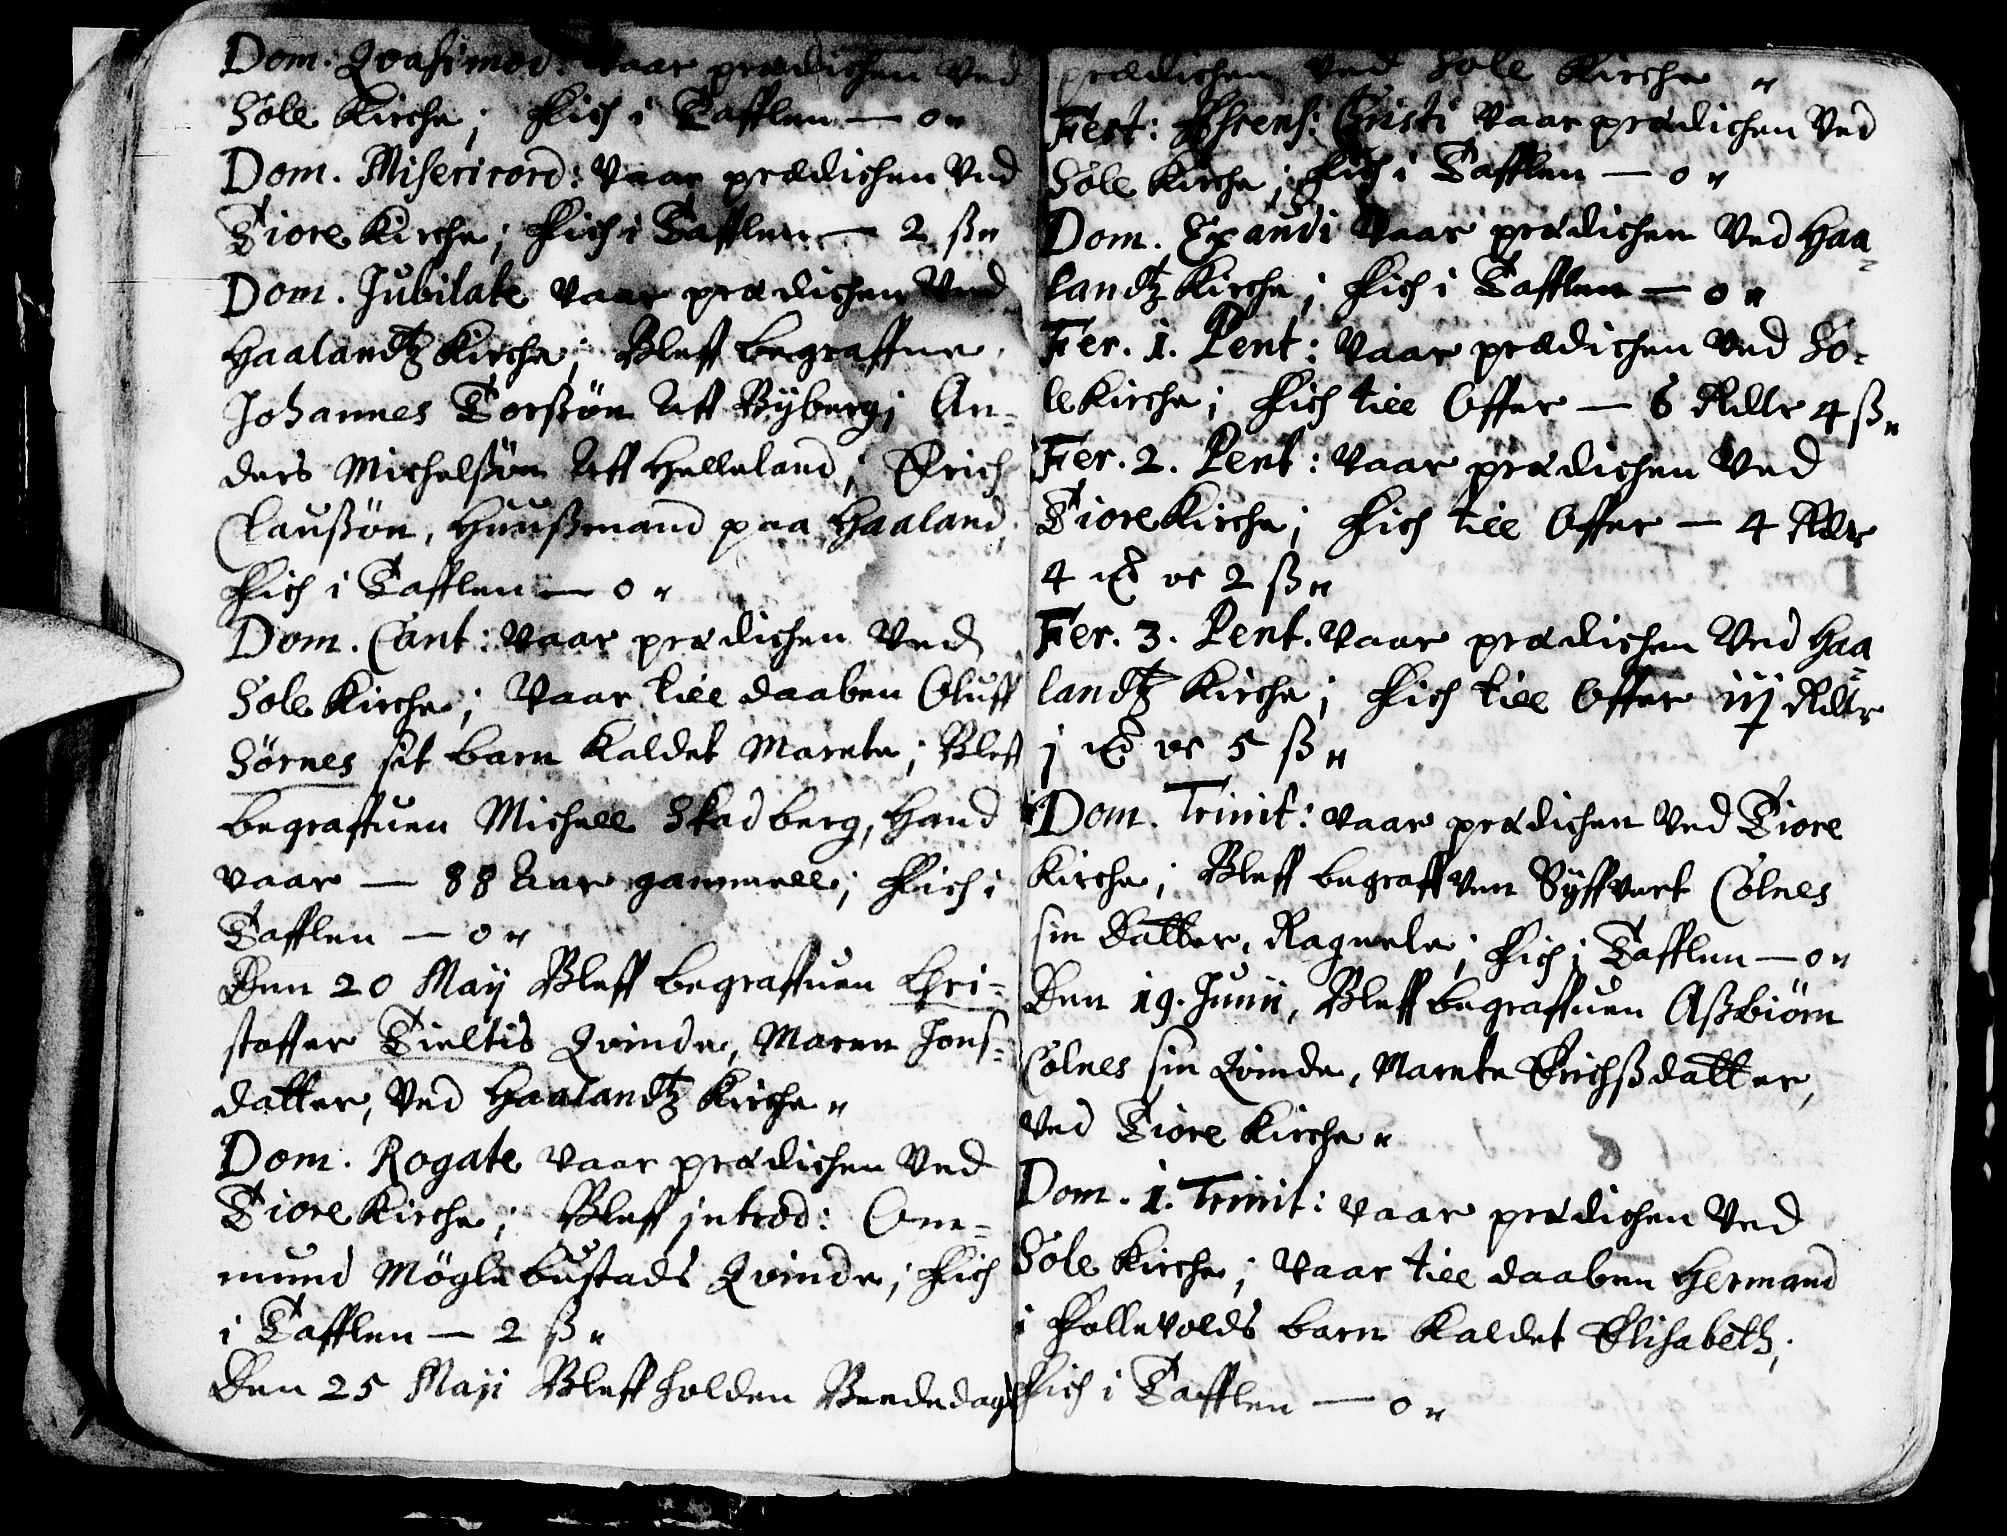 Dom: Qvasimod: Vaar prædichen Ved
Sole Kirche; Fich i Tafflen — 0"
Dom. Misericord: Vaar prædichen Ved
Tiore Kirche; Fich i Tafflen — 2 ß"
Dom. Jubilate Vaar prædichen Ved
Haalandtz Kirche; Bleff begraffne,
Johannes Torßøn Aff Ryberg; An=
ders Michelßøn Aff Helleland; Erich
Claußøn, Huußmand paa Haaland,
Fich i Tafflen — 0"
Dom. Cant: Vaar prædichen Ved
Sole Kirche; Vaar till daaben Oluff
Sørnes sit barn Kaldet Marete; Bleff
begraffuen Michell Skadberg, Hand
vaar — 88 Aar gammell; Fich i
Tafflen — 0"
Den 20 Maij Bleff begraffuen Chri=
staffer Tieltis Qvinde, Maren Jons=
datter, Ved Haalandtz Kirche"
Dom. Rogate vaar prædichen Ved
Tiore Kirche; Bleff introd: Om=
mund Møglebustads Qvinde; Fich
i Tafflen — 2 ß"
Den 25 Maji Bleff holden Beededags
prædichen Ved Sole Kirche "
Fest: Christi Vaar prædichen Ved
Sole Kirche; Fich i Tafflen — 0"
Dom. Exaudi Vaar prædichen Ved Haa=
landtz Kirche; Fich i Tafflen — 0"
Fer. 1. Pent: Vaar prædichen Ved So=
le Kirche; Fich till Offer — 6 Rdlr 4 ß"
Fer. 2. Pent: Vaar prædichen Ved
Tiore Kirche; Fich till Offer — 4 Rdlr
4 oc 2 ß"
Fer. 3. Pent. Vaar prædichen Ved Haa=
landtz Kirche; Fich till Offer iij Rdlr
j oc 5 ß"
Dom. Trinit: Vaar prædichen Ved Tiore
Kirche; Bleff begraffven Syffvert Colnes
sin datter, Ragnele; Fich i Tafflen — 0"
Den 19. Junii, Bleff begraffuen Aßbiørn
Colnes sin Qvinde, Marete Erichßdatter,
Ved Tiore Kirche"
Dom. 1. Trinit: vaar prædichen Ved
Sole Kirche; Vaar till daaben Hermand
i Follevolds barn Kaldet Elisabeth;
Fich i Tafflen — 0"